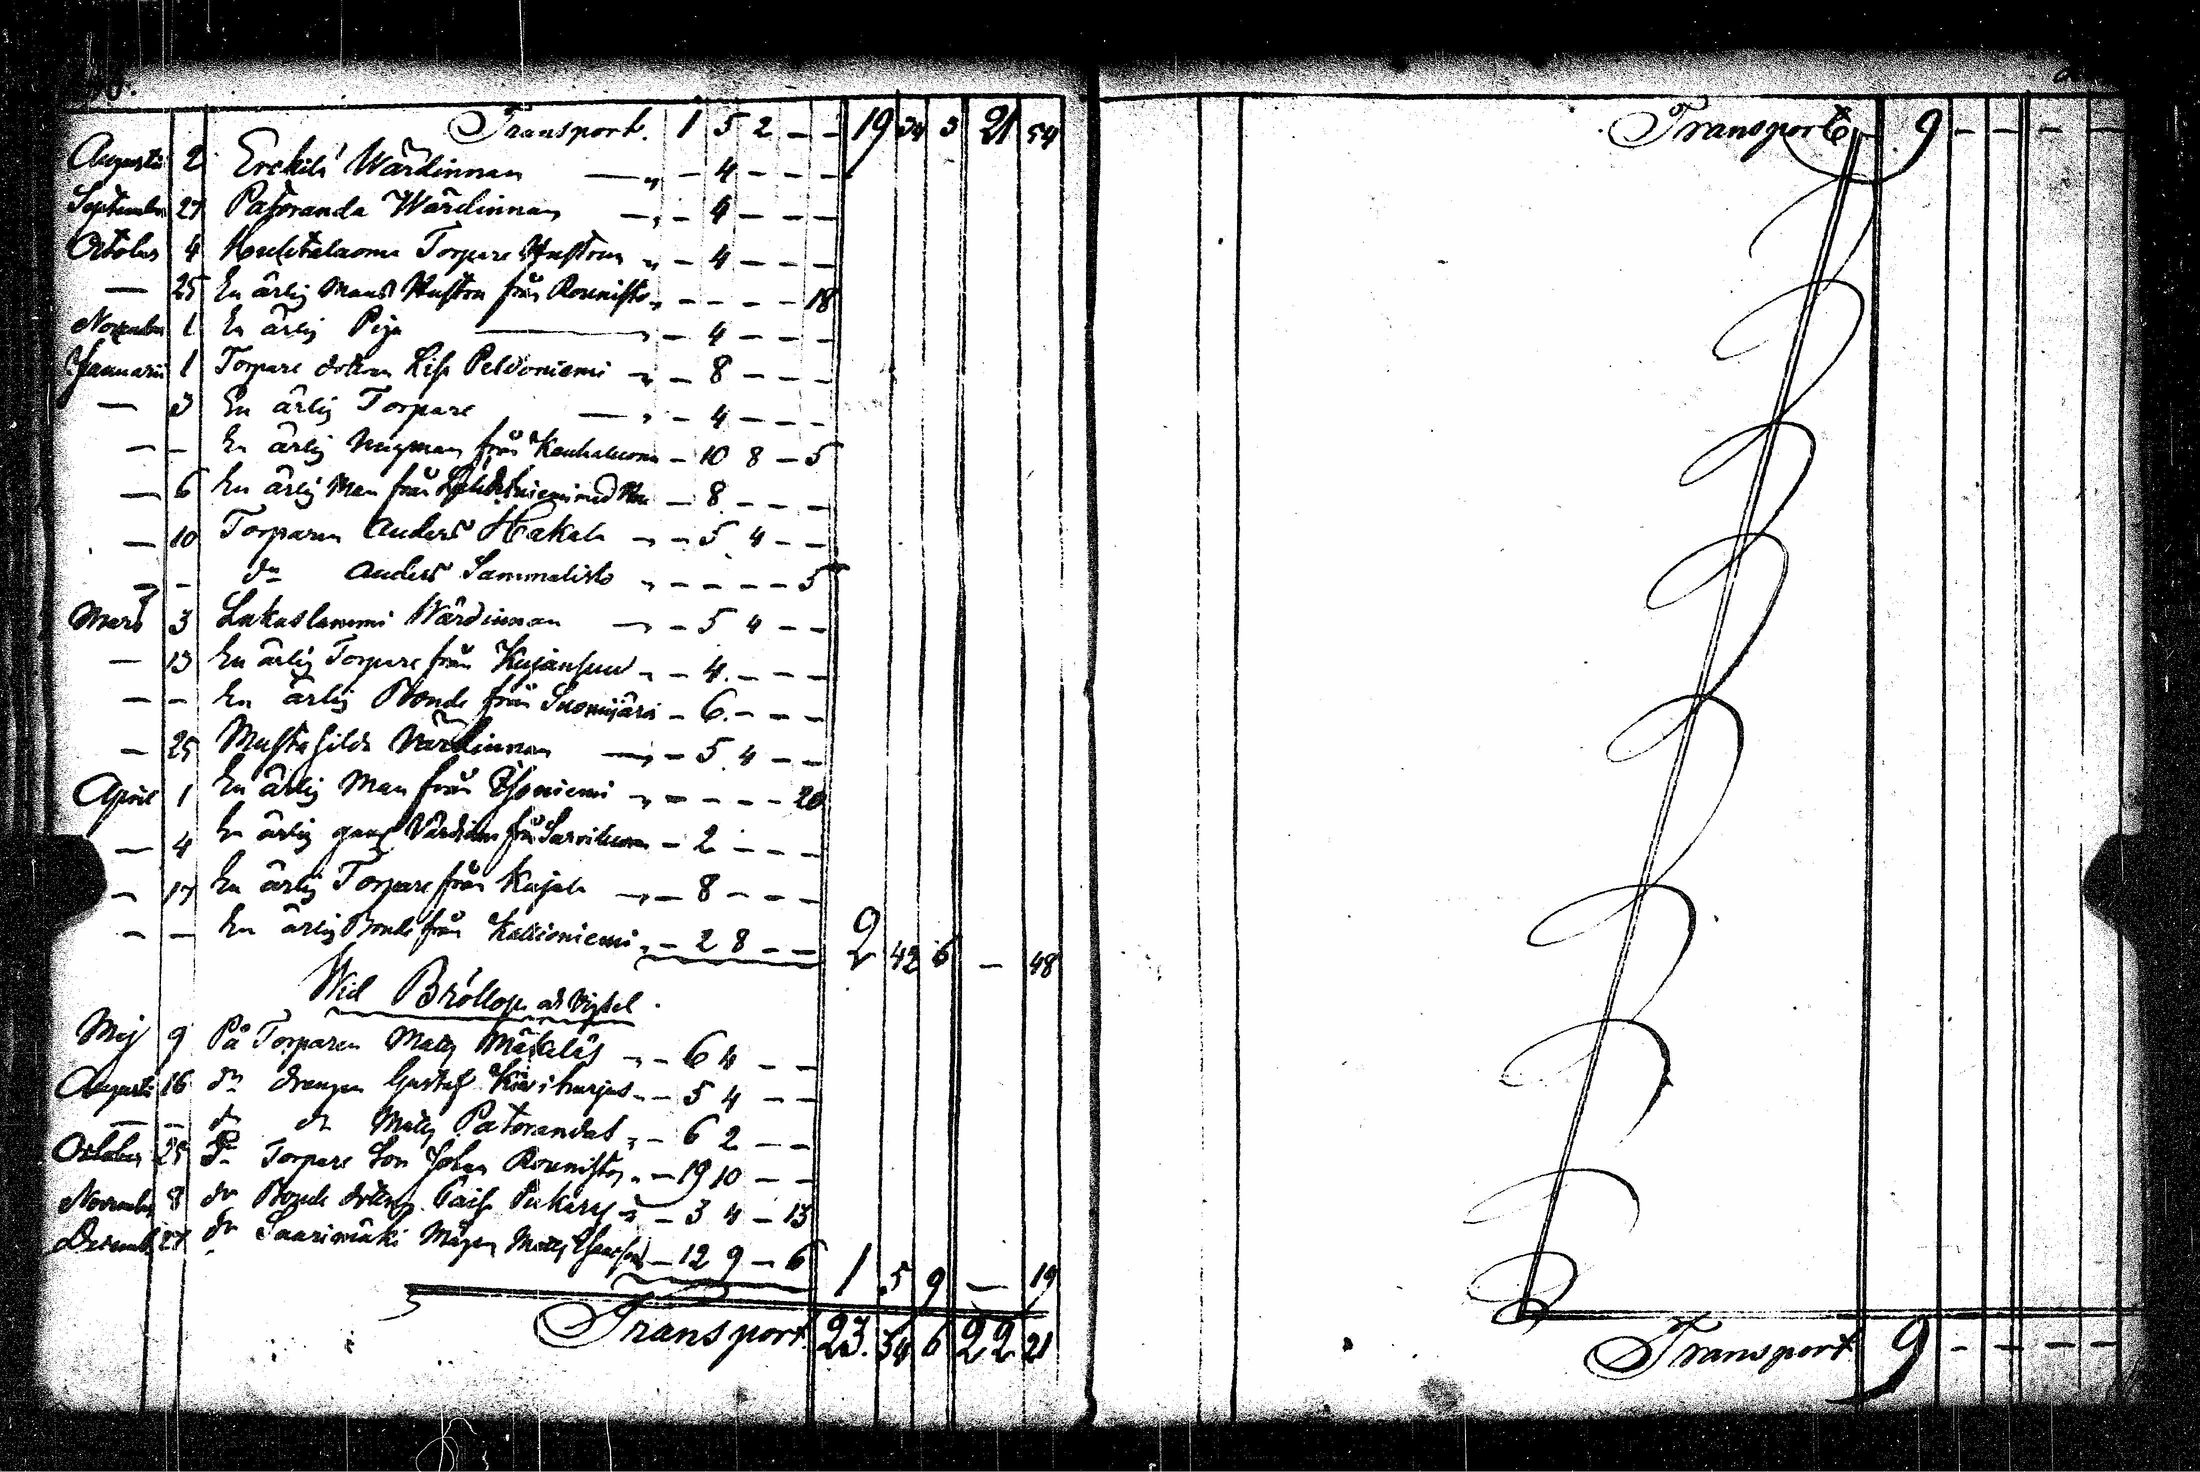 Transport. 1 5 2 – – 19 34 3 21 54
Augusti 2 Erckilä Wärdinnan — „ – 4 – – –
September 27 Patoranda Wärdinnan — „ – 4 – – –
October 4 Torpare Hustrun „ – 4 – – –
— 25 En ärlig Mans Hustru från Rounisto „ – – – – 18
November 1 En ärlig Piga — „ – 4 – – –
Januarii 1 Torpare dottren Lisa Peldoniemi „ – 8 – – –
— 3 En ärlig Torpare — „ – 4 – – –
– – En ärlig Ungman från Kauhaluoma – 10 8 – 5
— 6 En ärlig Man från med – 8 – – –
— 10 Torparen Anders Hakala „ – 5 4 – –
– – do Anders Sammalisto „ – – – – 5
Mars 3 Lukaslammi Wärdinnan „ – 5 4 – –
— 13 En ärlig Torpare från Kujansuu „ – 4 – – –
– – En ärlig Bonde från Suomijärvi – 6 – – –
— 25 Wärdinnan — „ – 5 4 – –
April 1 En ärlig Man från Isoniemi „ – – – – 20
— 4 En ärlig Värdinna från Sarviluoma – 2 – – –
— 17 En ärlig Torpare från Kujala „ – 8 – – –
– – En ärlig Bonde från Kallioniemi „ – 2 8 – – 2 42 6 – 48
Wid Bröllop och Vigsel.
Maj 9 På Torparen Matts Mäkeläs „ – 6 4 – –
Augusti 16 do drengen Gustaf Kiviharjus „ – 5 4 – –
– – do do Matts Patorandas „ – 6 2 – –
October 25 do Torpare Son Johan Rounistos „ – 19 10 – –
November 8 do Bonde dottren Caisa – 3 4 – 13
Decemb 27 do Saarimäki Mågen Matts – 12 9 – 6 1 5 9 – 19
Transport. 23. 34 6 22 21
Transport – 9 – – – –
Transport 9 – – – –